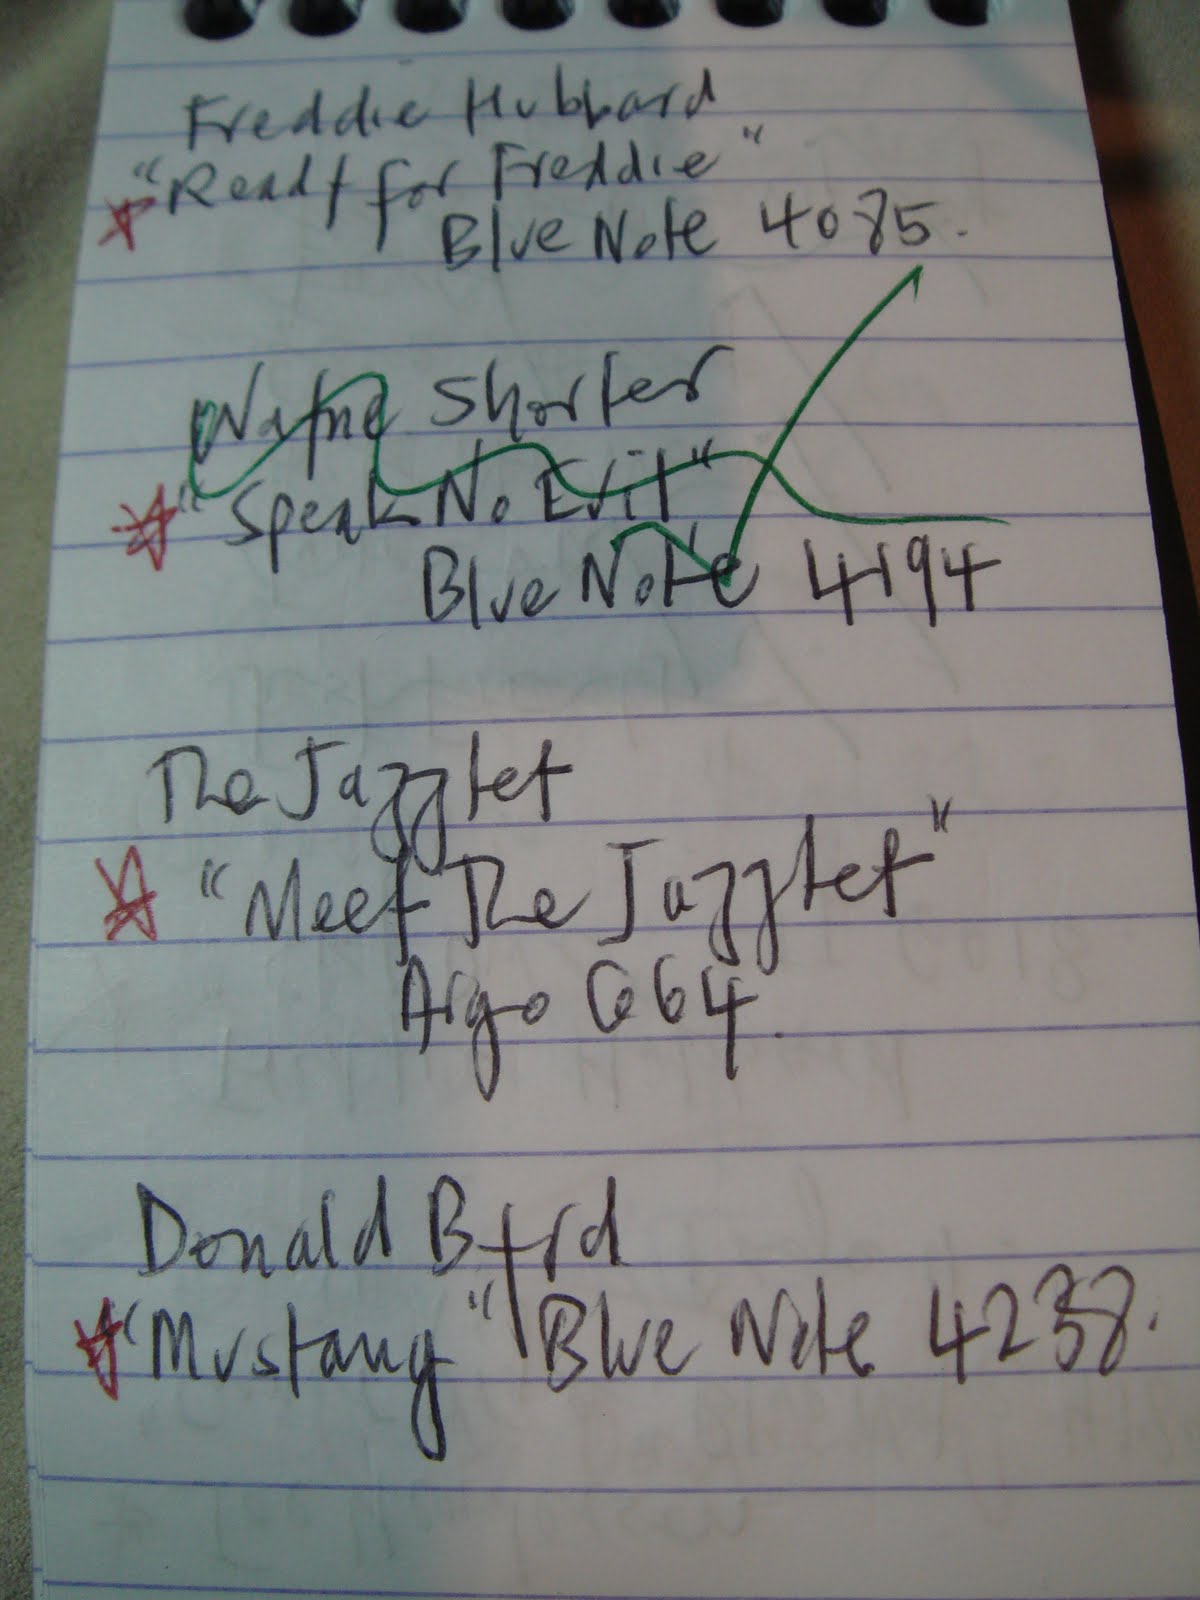 Freddie Hubbard
"Ready for Freddie"
Blue Note 4085.
Wayne Shorter
"Speak No Evil"
Blue Note 4194
The Jazztet
"Meet The Jazztet"
Argo 664.
Donald Byrd
"Mustang" Blue Note 4238.